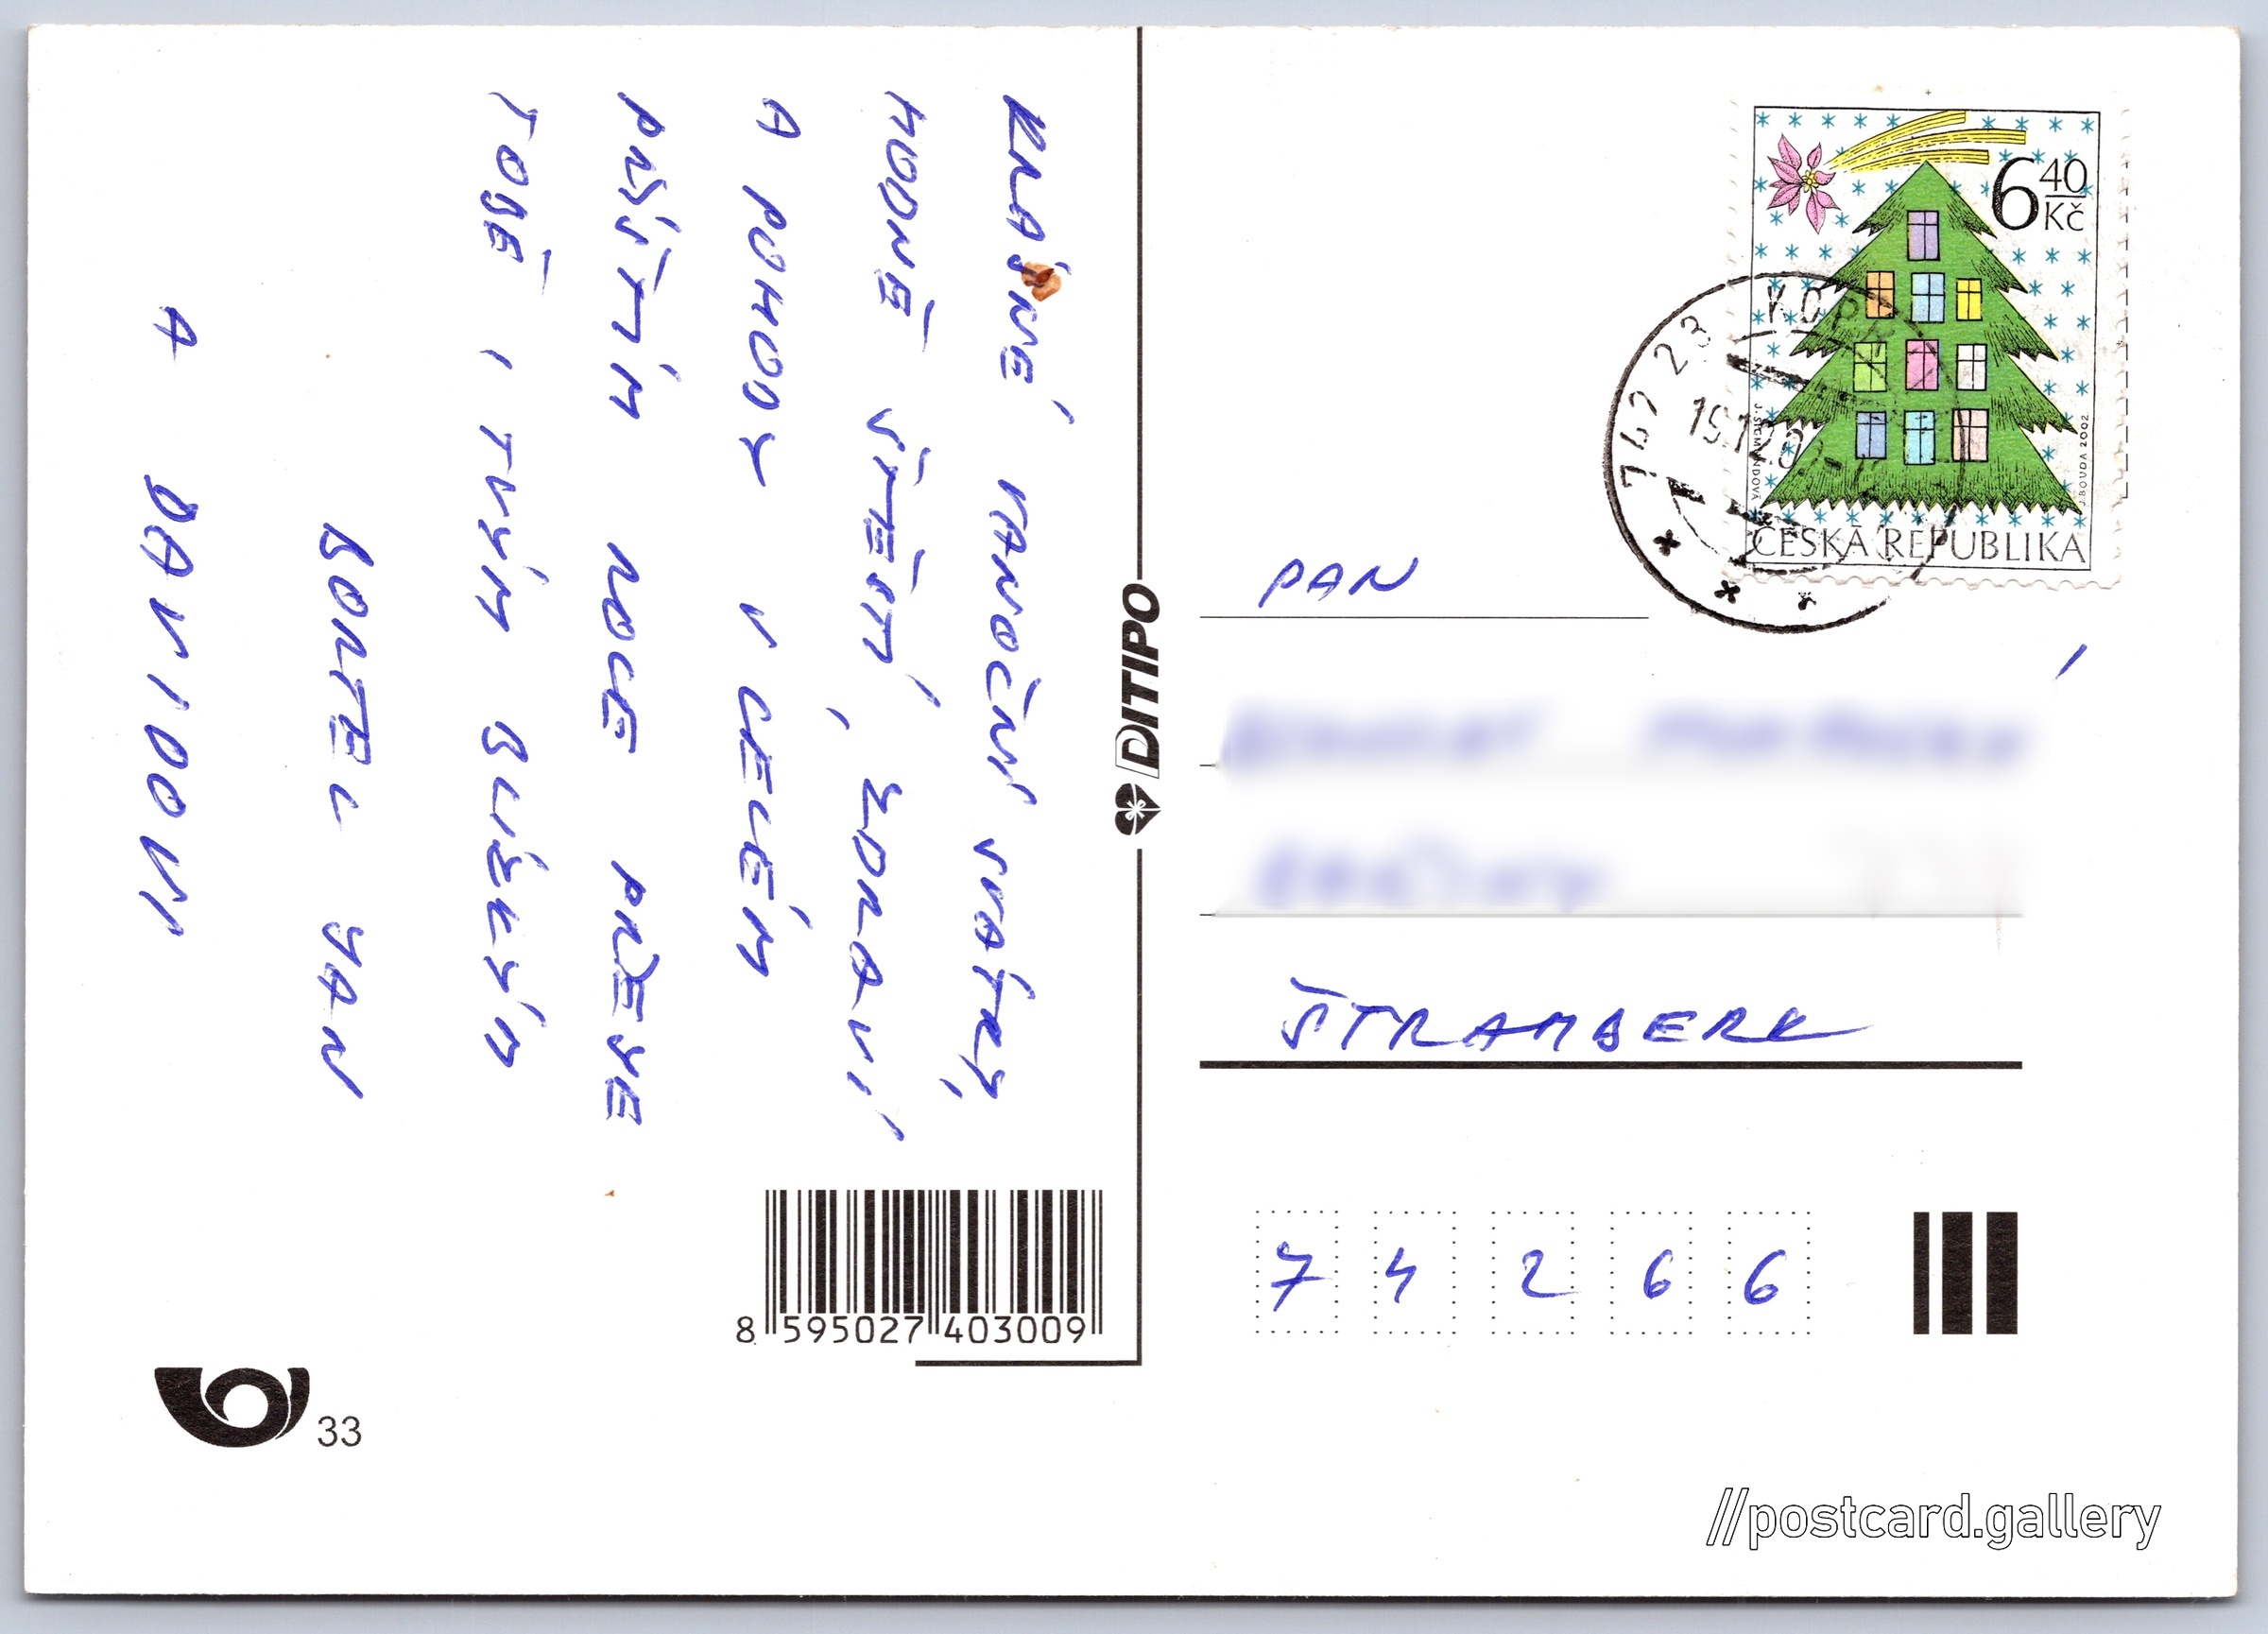 KRÁSNÉ VÁNOČNÍ SVÁTKY,
HODNĚ ŠTĚSTÍ, ZDRAVÍ
A POHODY V CELÉM
PŘÍŠTÍM ROCE PŘEJE
TOBĚ I TVÝM BLÍZKÝM
JAN
A DAVIDOVI
DITIPO
8 595027 403009
33
6 40
Kč
J. BOUDA 2002
ČESKÁ REPUBLIKA
742 23
PAN
ŠTRAMBERK
7 4 2 6 6
//postcard.gallery